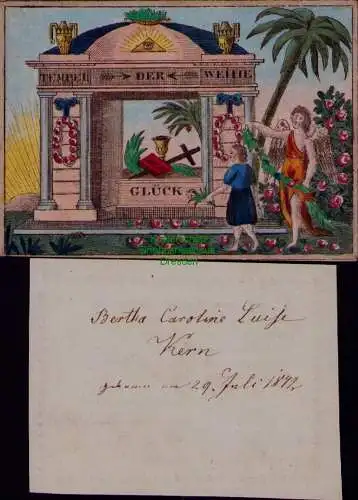 TEMPEL DER WEIHE
GLÜCK
Dresden
Bertha Caroline Luise
Kern
geboren am 29 Juli 1872